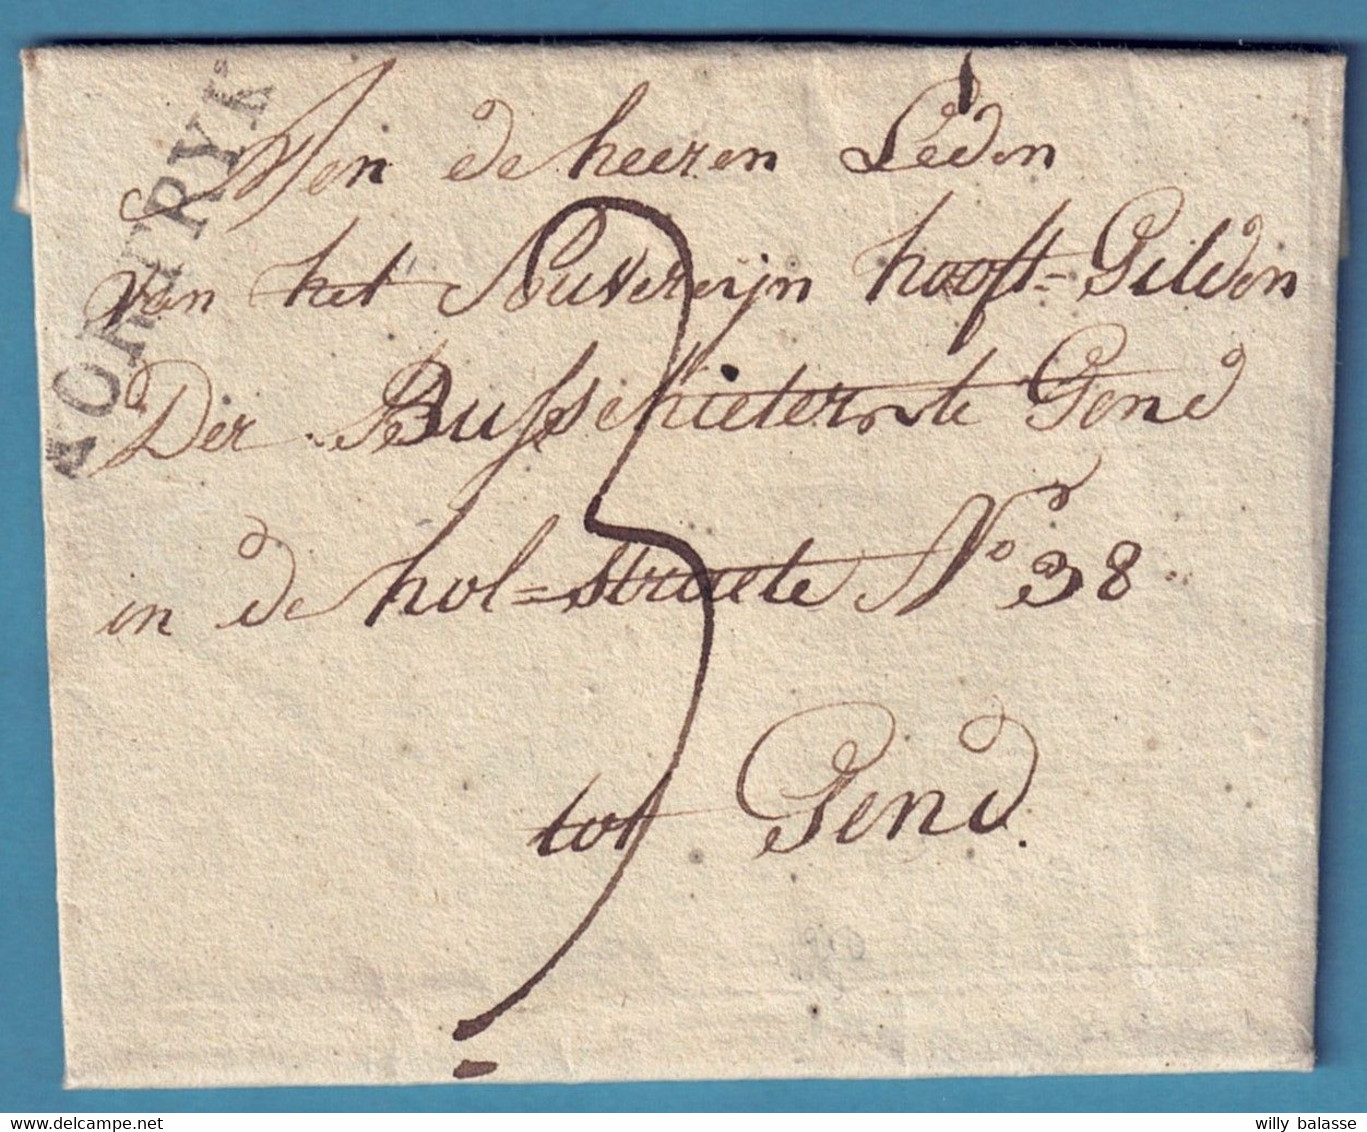 KORTRYK
den de heeren Leden
van het Souverijn hooft-Gilden
Der Busschieters te Gend
in de hol=straete No 38
3
tot Gend.
willy balasse